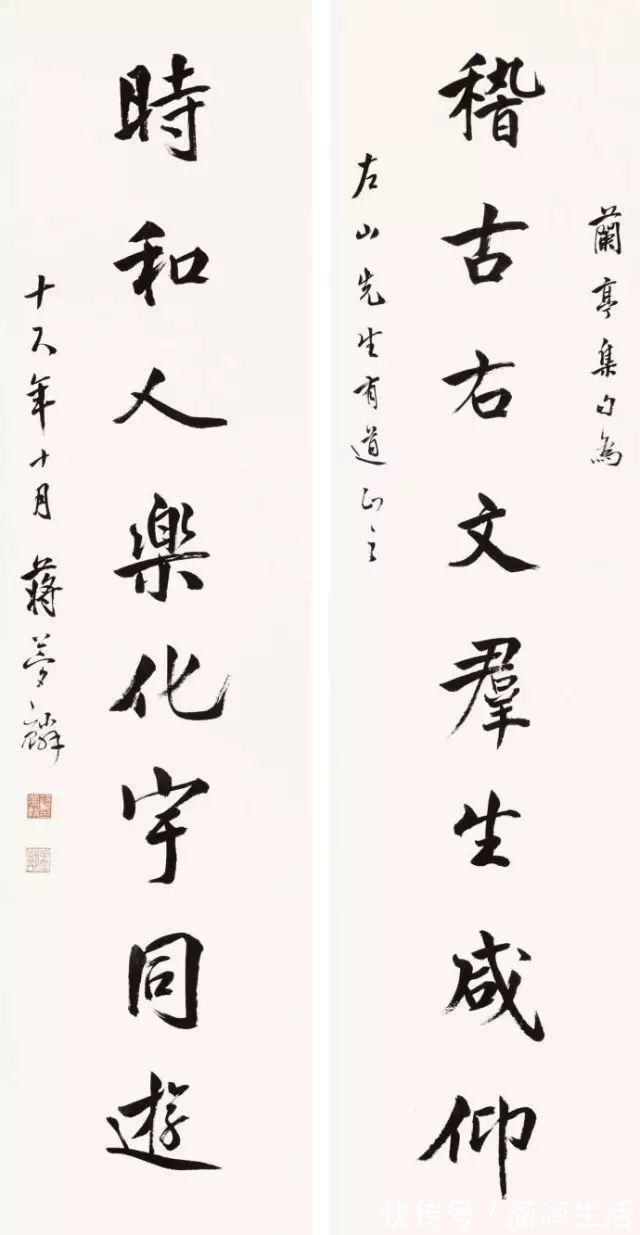 蘭亭集句為
稽古右文羣生咸仰
左山先生有道正之
時和人樂化宇同遊
十八年十月蔣夢麟
快传号／涵润生活